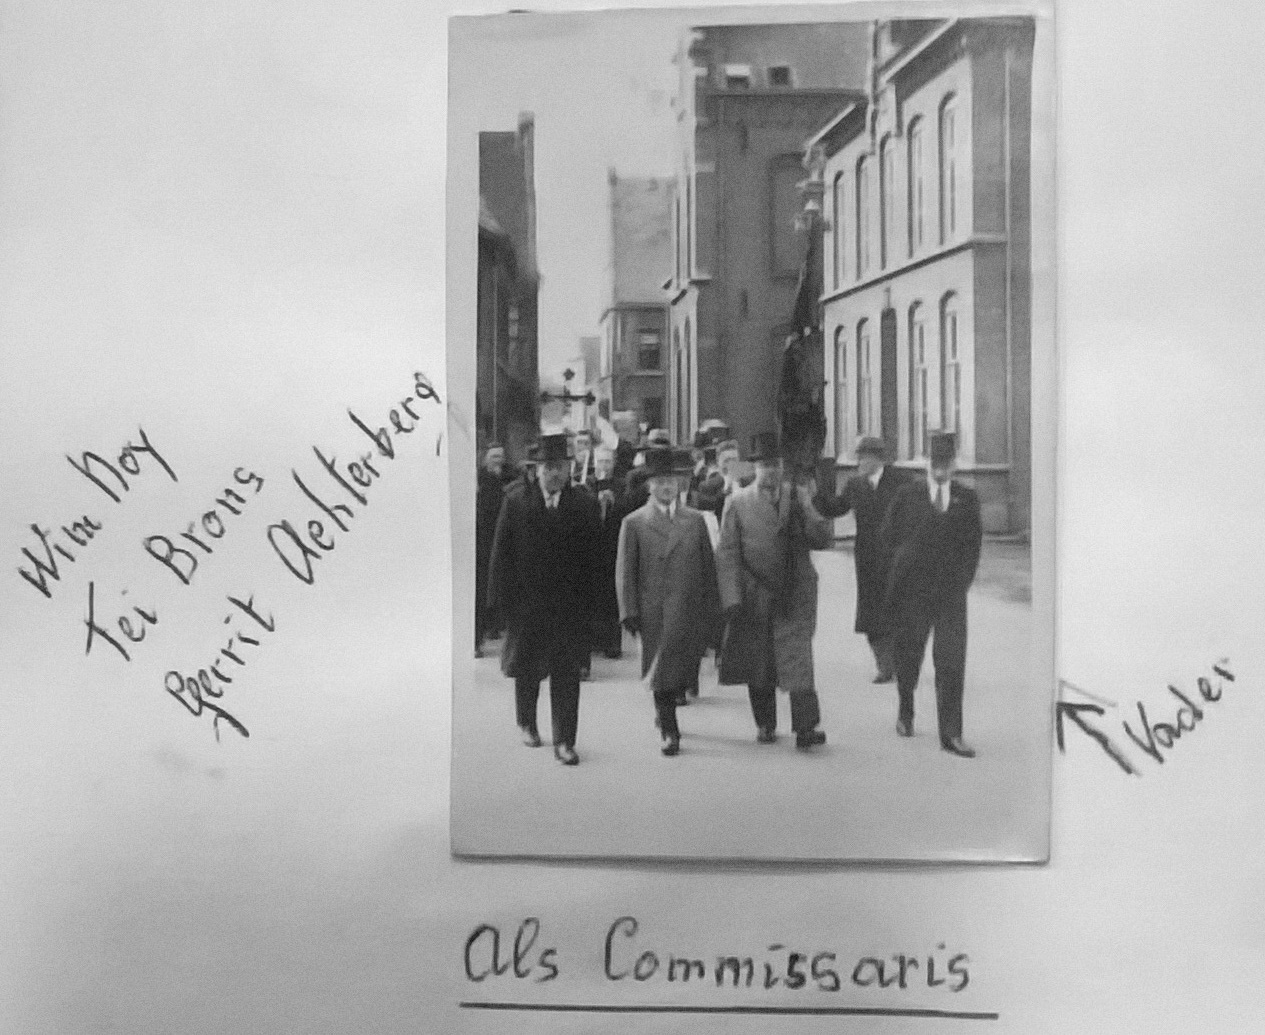 Wim Noy
Tei Brons
Gerrit Achterberg
Vader
Als Commissaris